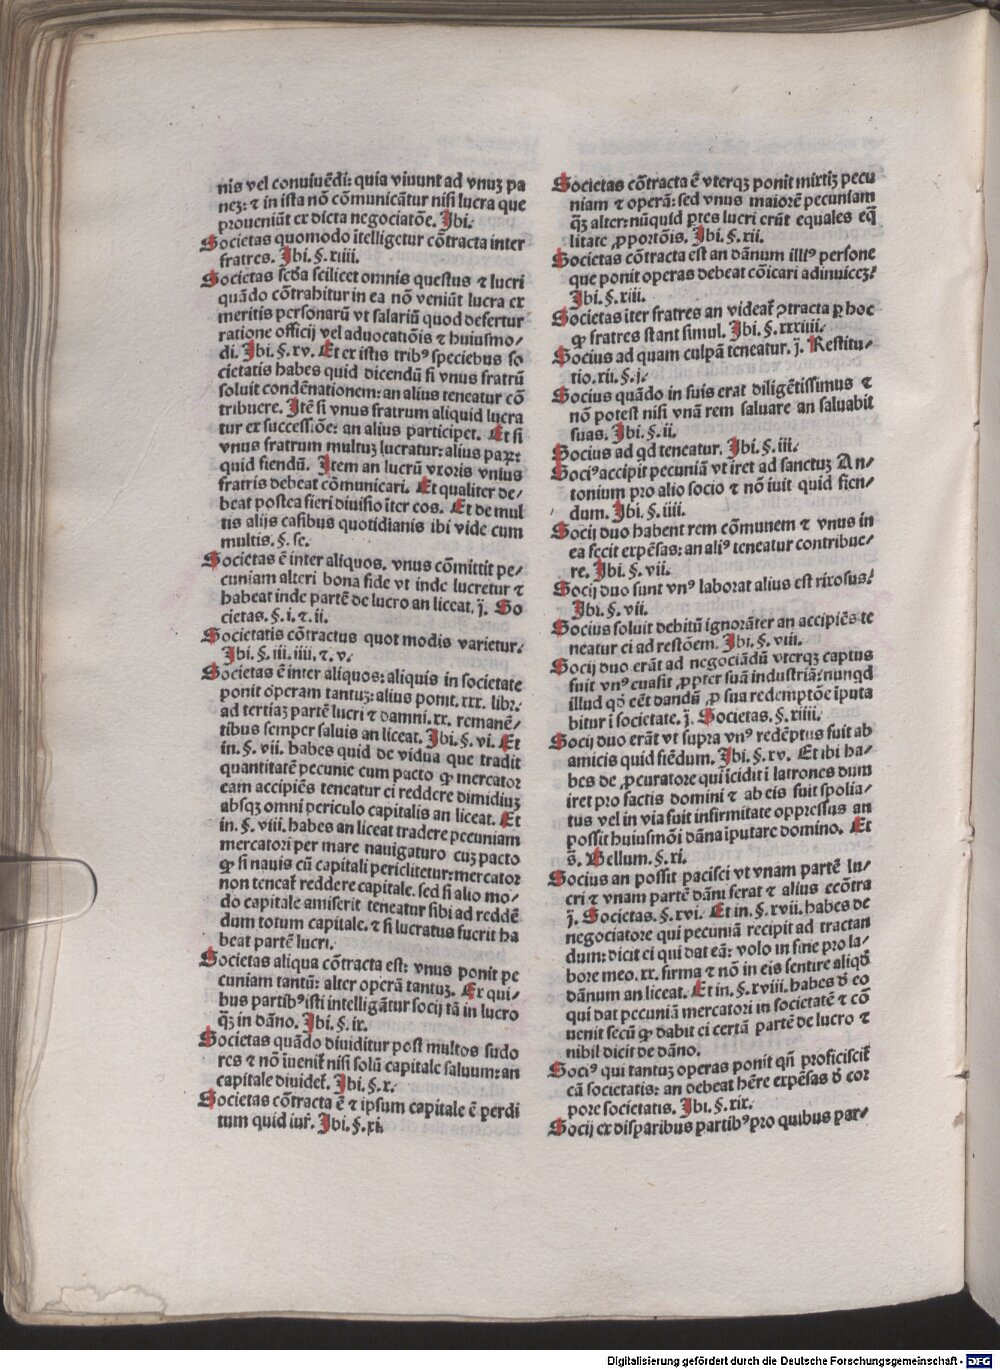 nis vel conviuēdi: quia viuunt ad vnuʒ pa
neʒ: ⁊ in ista nō cōmunicātur nisi lucra que
proueniūt ex dicta negociatōe. Ibi.
Societas quomodo ītelligetur cōtracta inter
fratres. Ibi. §. xiiii.
Societas scḋa scilicet omnis questus ⁊ lucri
quādo cōtrahitur in ea nō veniūt lucra ex
meritis personarū vt salariū quod defertur
ratione officij vel aduocatiōis ⁊ huiusmo/
di. Ibi. §. xv. Et ex istis tribꝰ speciebus so
cietatis habes quid dicendū si vnus fratrū
soluit condēnationem: an alius teneatur cō
tribuere. Itē si vnus fratrum aliquid lucra
tur ex successiōe: an alius participet. Et si
vnus fratrum multuʒ lucratur: alius paꝝ:
quid fiendū. Item an lucrū vxoris vnius
fratris debeat cōmunicari. Et qualiter de/
beat postea fieri diuisio īter eos. Et de mul
tis alijs casibus quotidianis ibi vide cum
multis. §. se.
Societas ē inter aliquos. vnus cōmittit pe/
cuniam alteri bona fide vt inde lucretur ⁊
habeat inde partē de lucro an liceat. j. So
cietas. §. i. ⁊. ii.
Societatis cōtractus quot modis varietur.
Ibi. §. iii. iiii. ⁊. v.
Societas ē inter aliquos: aliquis in societate
ponit operam tantuʒ: alius ponit. xxx. libr.
ad tertiaʒ partē lucri ⁊ damni. xx. remanē/
tibus semper saluis an liceat. Ibi. §. vi. Et
in. §. vii. habes quid de vidua que tradit
quantitatē pecunie cum pacto ꝙ mercator
eam accipiēs teneatur ei reddere dimidiuʒ
absqʒ omni periculo capitalis an liceat. Et
in. §. viii. habes an liceat tradere pecuniam
mercatori per mare nauigaturo cuʒ pacto
ꝙ si nauis cū capitali periclitetur: mercator
non teneat̄ reddere capitale. sed si alio mo/
do capitale amiserit teneatur sibi ad reddē
dum totum capitale. ⁊ si lucratus fuerit ha
beat partē lucri.
Societas aliqua cōtracta est: vnus ponit pe
cuniam tantū: alter operā tantuʒ. Ex qui/
bus partibꝰ isti intelligātur socij tā in lucro
q̄ʒ in dāno. Ibi. §. ix.
Societas quādo diuiditur post multos sudo
res ⁊ nō īuenit̄ nisi solū capitale saluum: an
capitale diuidet̄. Ibi. §. x.
Societas cōtracta ē ⁊ ipsum capitale ē perdi
tum quid iur̄. Ibi. §. xi.
Societas cōtracta ē vterqʒ ponit mixtiʒ pecu
niam ⁊ operā: sed vnus maiorē pecuniam
q̄ʒ alter: nūquid ꝑtes lucri erūt equales eq̄
litate ꝓportōis. Ibi. §. xii.
Societas cōtracta est an dānum illiꝰ persone
que ponit operas debeat cōicari adinuiceʒ.
Ibi. §. xiii.
Societas īter fratres an videat̄ ꝯtracta ꝑ hoc
ꝙ fratres stant simul. Ibi. §. xxxiiii.
Socius ad quam culpā teneatur. j. Restitu/
tio. xii. §. j.
Socius quādo in suis erat diligētissimus ⁊
nō potest nisi vnā rem saluare an saluabit
suas. Ibi. §. ii.
Socius ad qd teneatur. Ibi. §. iii.
Sociꝰ accipit pecuniā vt iret ad sanctuʒ An/
tonium pro alio socio ⁊ nō iuit quid fien/
dum. Ibi. §. iiii.
Socij duo habent rem cōmunem ⁊ vnus in
ea fecit expēsas: an aliꝰ teneatur contribue/
re. Ibi. §. vii.
Socij duo sunt vnꝰ laborat alius est rixosus.
Ibi. §. vii.
Socius soluit debitū ignorāter an accipiēs te
neatur ei ad restōem. Ibi. §. viii.
Socij duo erāt ad negociādū vterqʒ captus
fuit vnꝰ euasit ꝓpter suā industriā: nunqd
illud qḋ eēt dandū ꝓ sua redemptōe īputa
bitur ī societate. j. Societas. §. xiiii.
Socij duo erāt vt supra vnꝰ redēptus fuit ab
amicis quid fiēdum. Ibi. §. xv. Et ibi ha/
bes de ꝓcuratore qui īcidit ī latrones dum
iret pro factis domini ⁊ ab eis fuit spolia/
tus vel in via fuit infirmitate oppressus an
possit huiusmōi dāna īputare domino. Et
s̄. Bellum. §. xi.
Socius an possit pacisci vt vnam partē lu/
cri ⁊ vnam partē dāni ferat ⁊ alius ecōtra
j. Societas. §. xvi. Et in. §. xvii. habes de
negociatore qui pecuniā recipit ad tractan
dum: dicit ei qui dat eā: volo in fine pro la/
bore meo. xx. firma ⁊ nō in eis sentire aliqḋ
dānum an liceat. Et in. §. xviii. habes ḋ eo
qui dat pecuniā mercatori in societatē ⁊ cō
uenit secū ꝙ dabit ei certā partē de lucro ⁊
nihil dicit de dāno.
Sociꝰ qui tantuʒ operas ponit qn̄ proficiscit̄
cā societatis: an debeat hēre expēsas ḋ cor
pore societatis. Ibi. §. xix.
Socij ex disparibus partibꝰ pro quibus par/
Digitalisierung gefördert durch die Deutsche Forschungsgemeinschaft - DFG